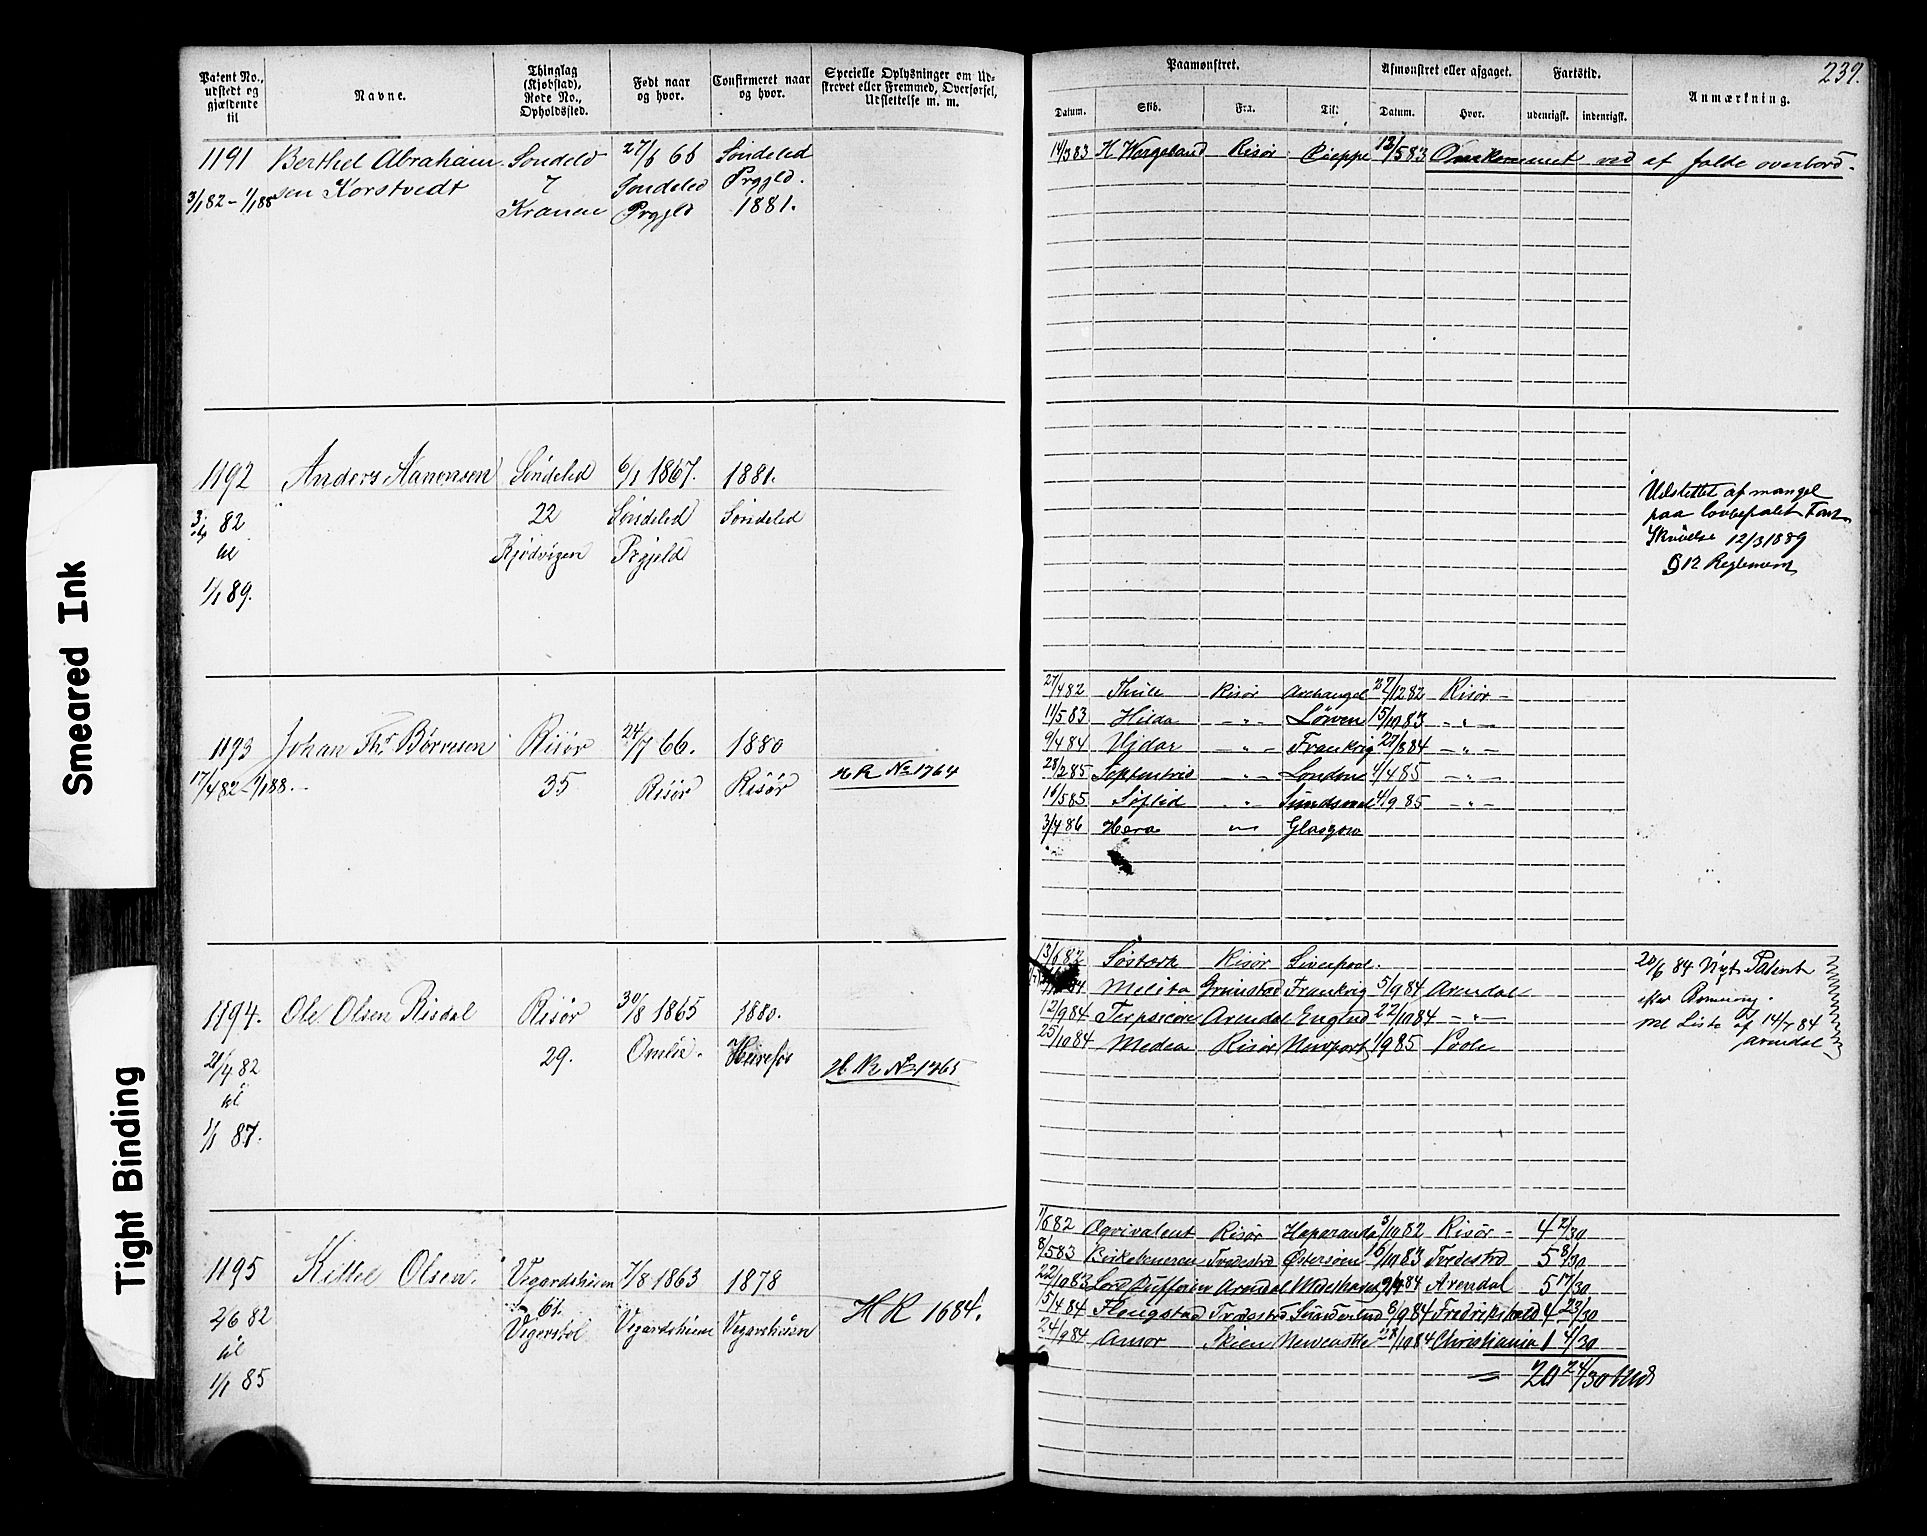 Smeared Ink
Tight Binding
Patent No., udstedt og gjældende til
Navne.
Thinglag (Kjøbstad), Rode No., Opholdssted.
Født naar og hvor.
Confirmeret naar og hvor.
Specielle Oplysninger om Udskrevet eller Fremmed, Overførsel, Udslettelse m. m.
Paamønstret.
Afmønstret eller afgaaet.
Fartstid.
Anmærkning.
239.
Datum. Skib. Fra. Til. Datum. Hvor. udenrigsk. indenrigsk.
1191 Berthel Abraham Søndeled 27/6 66 Søndeled
3/1 82 - 1/1 88 sen Korstvedt 7 Søndeled Prggld.
Kranen Prggld 1881.
14/3 83 H. Wergeland Risør Dieppe 12/5 83 Omkommet ved at falde overbord.
1192 Anders Aanensen Søndeled 6/1 1867. 1881.
82 22 Søndeled Søndeled
til Kjødvigen Prgjeld
1/1 89.
Udslettet af mangel
paa lovbefalet Fart
Skrivelse 12/3 1889
§ 12 Reglement
1193 Johan Ths Børresen Risør 24/7 66. 1880
17/4 82 - 1/1 88. 35 Risør Risør H R No 1764
27/4 82 Thule Risør Archangel 27/12 82 Risør
11/5 83 Hilda - " - Løwen 15/10 83 - " -
9/4 84 Vidar - " - Frankrig 27/8 84 - " -
28/2 85 - " - London 1/4 85 - " -
Søflid - " - Sundsval 4/9 85 - " -
3/4 86 Hera - " - Glasgow
1194. Ole Olsen Risdal Risør 30/8 1865 1880.
21/4 82 29. Omlie. H R No 1765
til
1/1 87.
13/6 82 Risør Liverpool.
Melita Grimstad Frankrig 5/9 84 Arendal
12/9 84 Terpsicore Arendal England 22/10 84 - " -
25/10 84 Medea Risør Newport 1/9 85 Poole
20/6 84 Nyt Patent
efter
14/7 84
Arendal
1195 Kittel Olsen. Vegardsheien 7/8 1863 1878
2/6 82 61. Vegardsheien Vegardsheien H R 1684.
til Vegerstøl
1/1 85
1/6 82 Æqvivalent Risør Haparanda 3/10 82 Risør 4 2/30
8/5 83 Birkebeneren Tvedestrd Østersøen 16/10 83 Tvedestrd 5 8/30
22/10 83 Lord Dufferin Arendal 84 Arendal 5 17/30
15/4 84 Tvedestrd Sunderland 8/9 84 Fredrikshald 4 23/30
24/9 84 Amor Skien Newcastle 28/10 84 Christiania 1 4/30
20 24/30 Mds